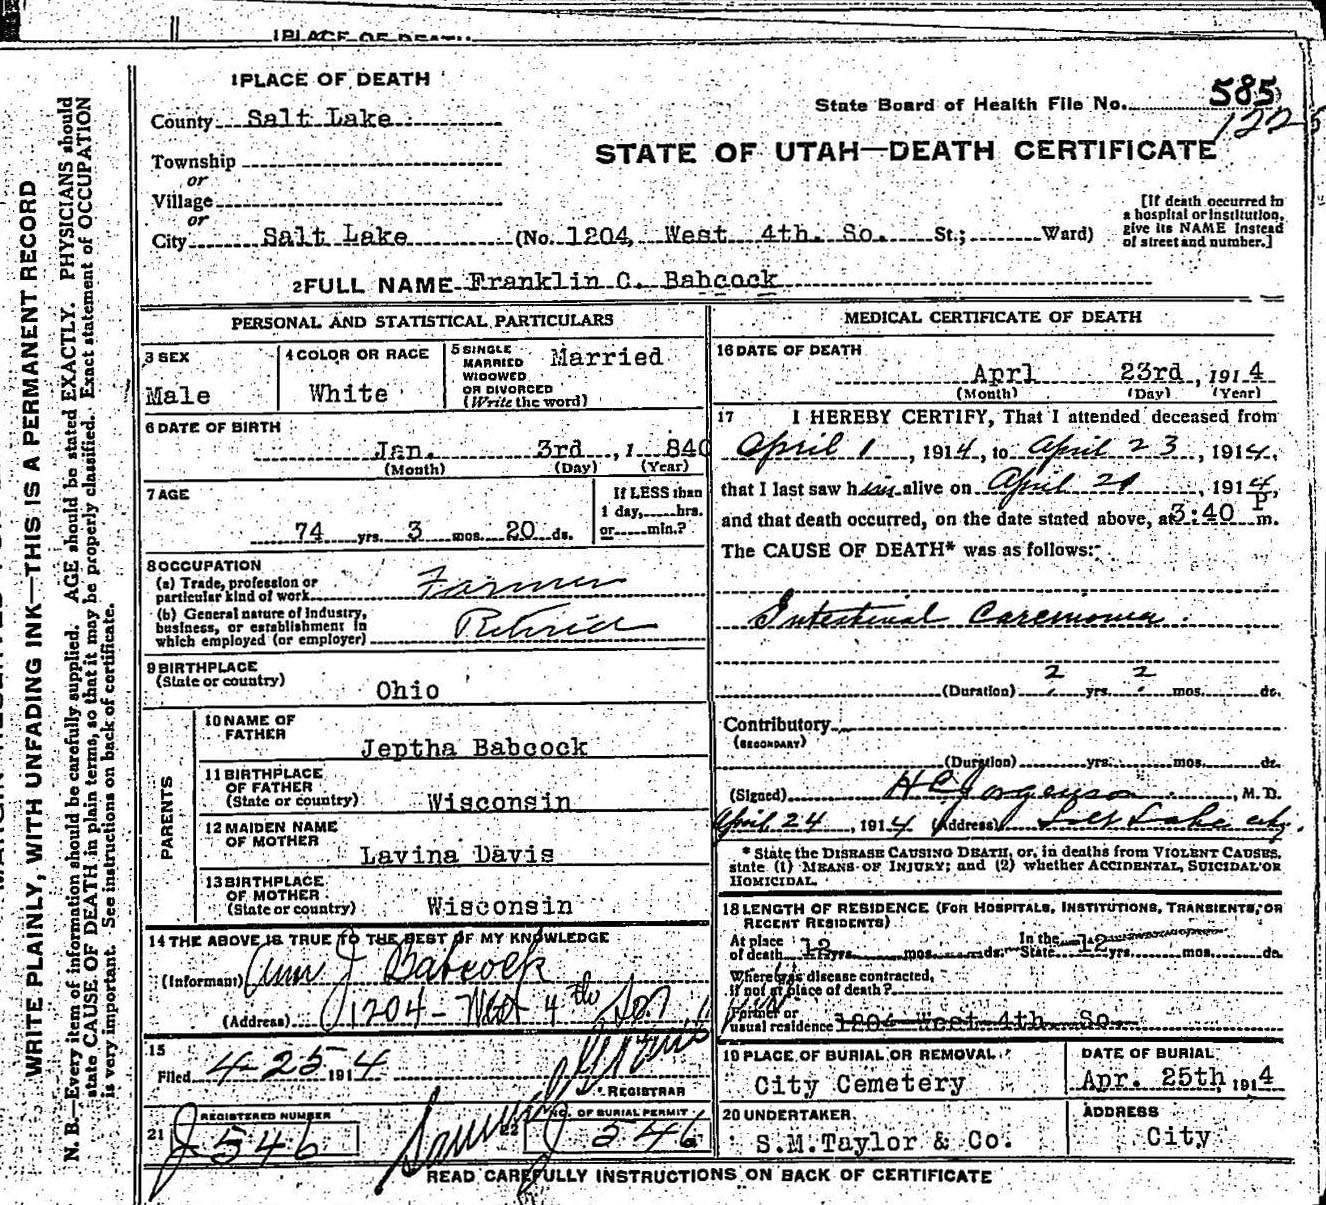 1 PLACE OF DEATH
1 PLACE OF DEATH
State Board of Health File No. 585
1225
County Salt Lake
STATE OF UTAH—DEATH CERTIFICATE
Township
or
Village
or
City Salt Lake (No. 1204 West 4th. So. St.; Ward)
[If death occurred in
a hospital or institution,
give its NAME instead
of street and number.]
2 FULL NAME Franklin C. Babcock
PERSONAL AND STATISTICAL PARTICULARS
3 SEX
Male
4 COLOR OR RACE
White
5 SINGLE
MARRIED
WIDOWED
OR DIVORCED
(Write the word)
Married
6 DATE OF BIRTH
Jan. 3rd , 1 840
(Month) (Day) (Year)
7 AGE
74 yrs. 3 mos. 20 ds.
If LESS than
1 day, hrs.
or min.?
8 OCCUPATION
(a) Trade, profession or
particular kind of work Farmer
(b) General nature of industry,
business, or establishment in
which employed (or employer) Retired
9 BIRTHPLACE
(State or country)
Ohio
PARENTS
10 NAME OF
FATHER
Jeptha Babcock
11 BIRTHPLACE
OF FATHER
(State or country) Wisconsin
12 MAIDEN NAME
OF MOTHER
Lavina Davis
13 BIRTHPLACE
OF MOTHER
(State or country) Wisconsin
14 THE ABOVE IS TRUE TO THE BEST OF MY KNOWLEDGE
(Informant) Ann J Babcock
(Address) 1204 - West 4th So.
15
Filed 4-25 1914
REGISTRAR
21 REGISTERED NUMBER
J 546
22 NO. OF BURIAL PERMIT
J 546
MEDICAL CERTIFICATE OF DEATH
16 DATE OF DEATH
Aprl 23rd , 1914
(Month) (Day) (Year)
17 I HEREBY CERTIFY, That I attended deceased from
April 1 , 1914, to April 23 , 1914,
that I last saw him alive on April 21 , 1914,
and that death occurred, on the date stated above, at 3:40 P m.
The CAUSE OF DEATH* was as follows:
Intestinal Carcmonia.
(Duration) 2 yrs. 2 mos. ds.
Contributory
(SECONDARY)
(Duration) yrs. mos. ds.
(Signed) H C Jorgenson , M. D.
April 24 , 1914 (Address) Salt Lake city.
* State the DISEASE CAUSING DEATH, or, in deaths from VIOLENT CAUSES,
state (1) MEANS OF INJURY; and (2) whether ACCIDENTAL, SUICIDAL OR
HOMICIDAL.
18 LENGTH OF RESIDENCE (FOR HOSPITALS, INSTITUTIONS, TRANSIENTS, OR
RECENT RESIDENTS)
At place
of death 12 yrs. mos. ds. In the
State 12 yrs. mos. ds.
Where was disease contracted,
if not at place of death?
Former or
usual residence 1204 West 4th So.
19 PLACE OF BURIAL OR REMOVAL
City Cemetery
DATE OF BURIAL
Apr. 25th 1914
20 UNDERTAKER
S.M.Taylor & Co.
ADDRESS
City
READ CAREFULLY INSTRUCTIONS ON BACK OF CERTIFICATE
WRITE PLAINLY, WITH UNFADING INK—THIS IS A PERMANENT RECORD
N. B.—Every item of information should be carefully supplied. AGE should be stated EXACTLY. PHYSICIANS should
state CAUSE OF DEATH in plain terms, so that it may be properly classified. Exact statement of OCCUPATION
is very important. See instructions on back of certificate.